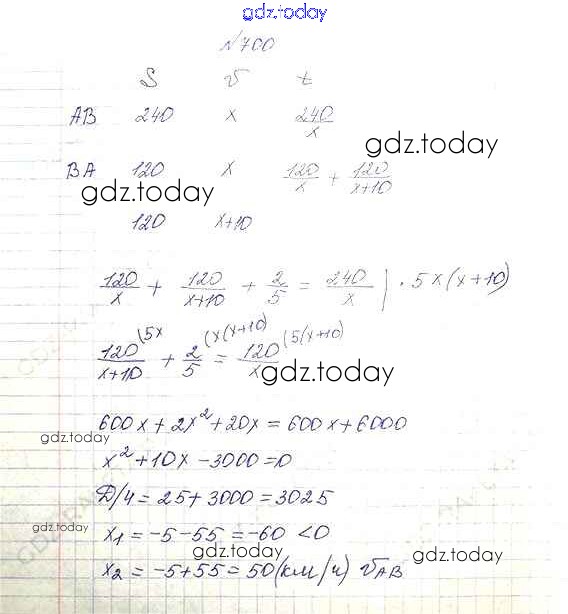 gdz.today
№700
S v t
AB 240 x 240/x
gdz.today
BA 120 x 120/x + 120/(x+10)
gdz.today
120 x+10
120/x + 120/(x+10) + 2/5 = 240/x | · 5x(x+10)
120/(x+10) (5x + 2/5 (x(x+10) = 120/x (5(x+10)
gdz.today
600x + 2x² + 20x = 600x + 6000
gdz.today
x² + 10x - 3000 = 0
D/4 = 25 + 3000 = 3025
gdz.today
x₁ = -5 - 55 = -60 < 0
gdz.today
gdz.today
x₂ = -5 + 55 = 50 (км/ч) v AB